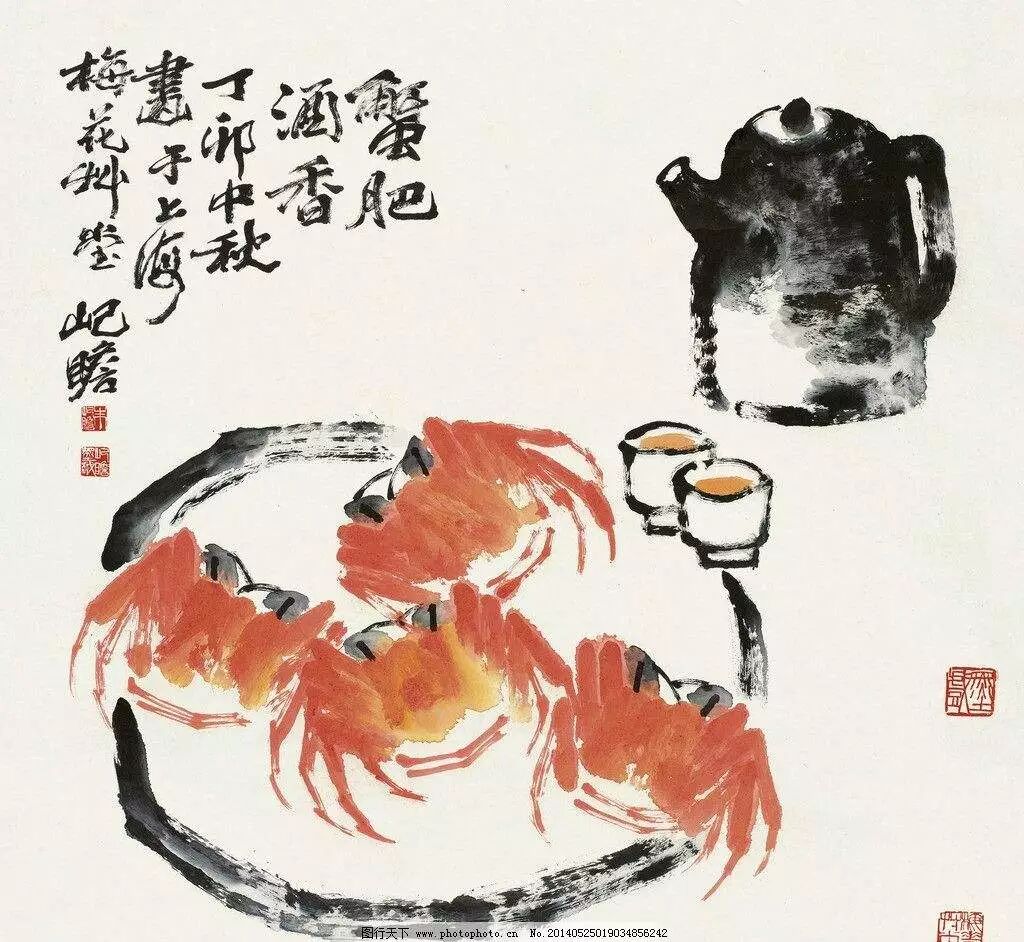 蟹肥
酒香
丁卯中秋
畫于上海
梅花艸堂
屺瞻
图行天下 www.photophoto.cn No.20140525019034856242